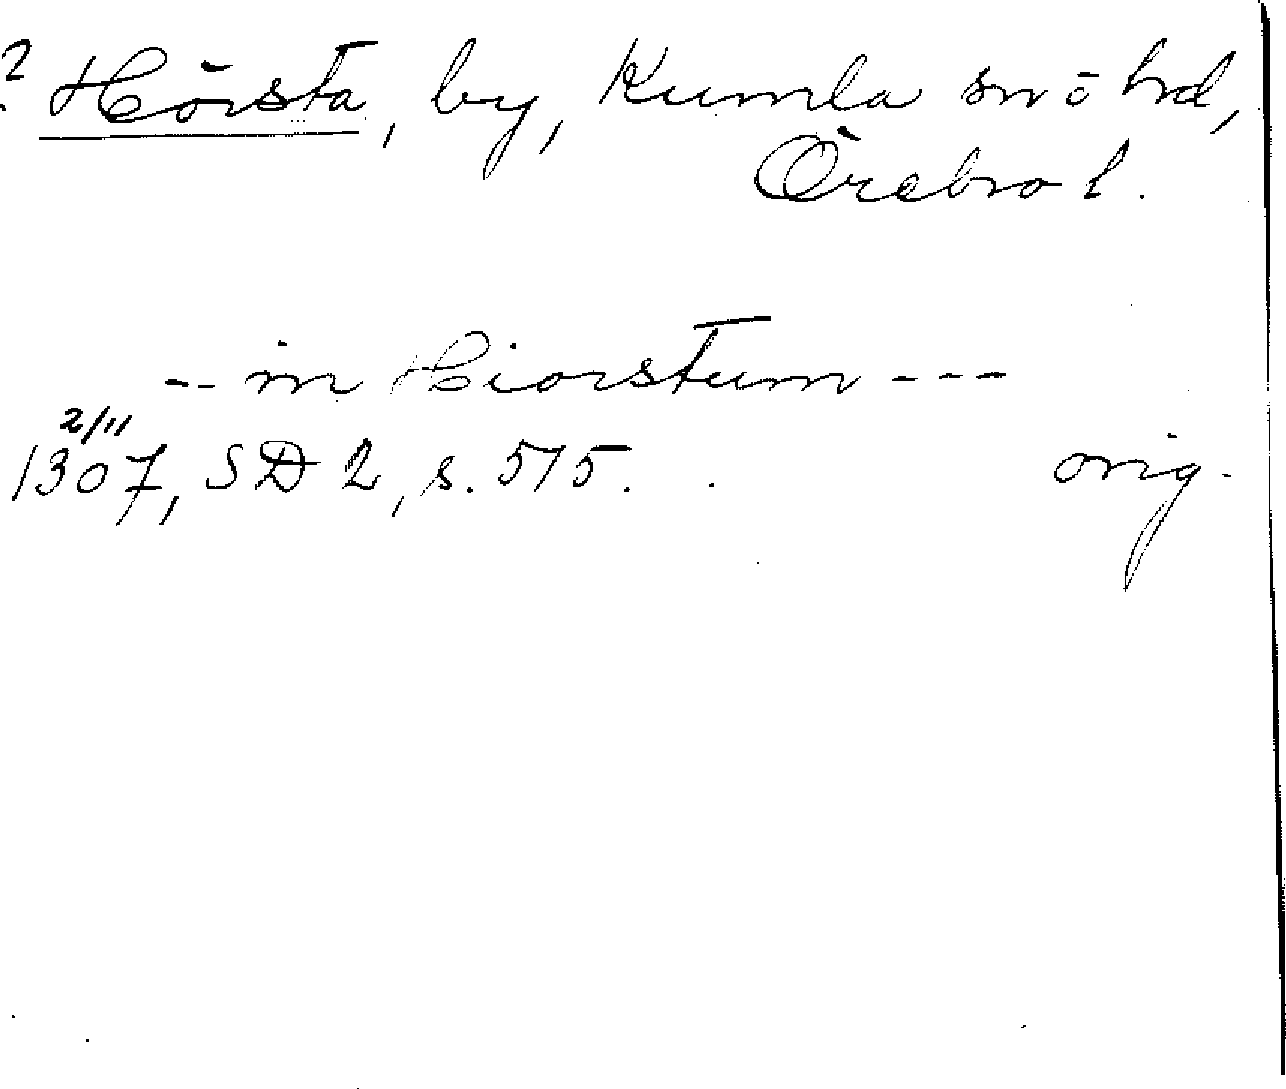 ? Hörsta, by, Kumla sn o hd,
Örebro l.
-- in Hiorstum ---
2/11
1307, SD 2, s. 575. orig.